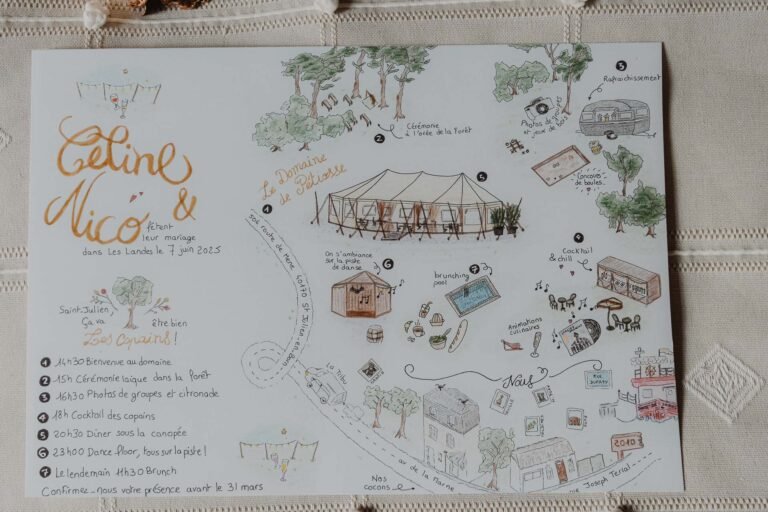 Céline
& Nico
fêtent
leur mariage
dans Les Landes le 7 juin 2025
Saint-Julien
Ça va être bien
Les Copains !
1 14h30 Bienvenue au domaine
2 15h Cérémonie laïque dans la forêt
3 16h30 Photos de groupes et citronade
4 18h Cocktail des copains
5 20h30 Dîner sous la canopée
6 23h00 Dance floor, tous sur la piste !
7 Le lendemain 11h30 Brunch
Confirmez-nous votre présence avant le 31 mars
2
Cérémonie
à l'orée de la forêt
3
Rafraichissement
Photos de groupes
et jeux de bois
Concours
de boules
Le Domaine
de Pétiosse
1
5
40170 St Julien-en-Born
On s'ambiance
sur la piste
de danse
6
brunching
pool
7
4
Cocktail
& chill
Animations
culinaires
Nous
La Tribu
2010
Nos
cocons
av de la Marne
rue Joseph